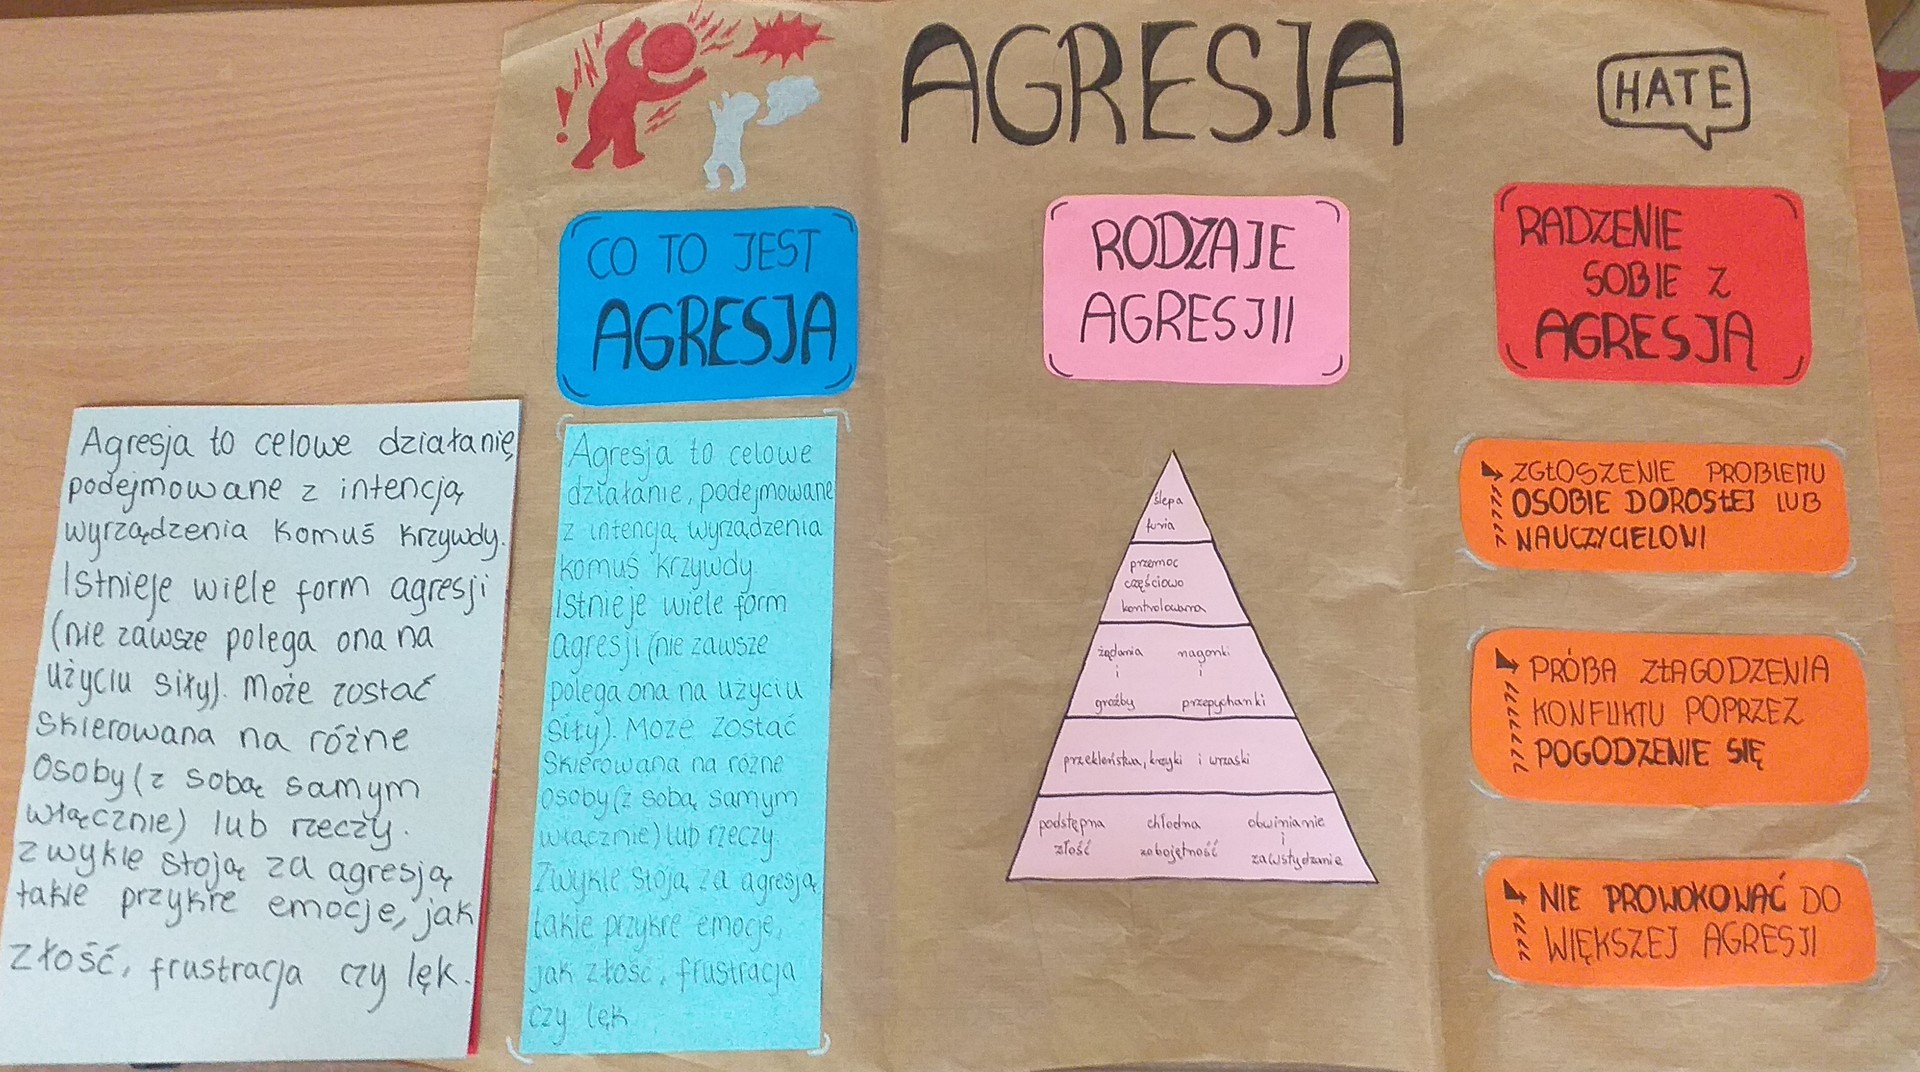 AGRESJA
HATE
CO TO JEST
AGRESJA
RODZAJE
AGRESJII
RADZENIE
SOBIE Z
AGRESJĄ
Agresja to celowe działanię,
podejmowane z intencją
wyrządzenia komuś krzywdy.
Istnieje wiele form agresji
(nie zawsze polega ona na
użyciu siły). Może zostać
skierowana na różne
osoby (z sobą samym
włącznie) lub rzeczy.
Zwykle stoją za agresją
takie przykre emocje, jak
złość, frustracja czy lęk.
Agresja to celowe
działanie, podejmowane
z intencją wyrządzenia
komuś krzywdy.
Istnieje wiele form
agresji (nie zawsze
polega ona na użyciu
siły). Może zostać
skierowana na różne
osoby (z sobą samym
włącznie) lub rzeczy.
Zwykle stoją za agresją
takie przykre emocje,
jak złość, frustracja
czy lęk
ślepa
furia
przemoc
częściowo
kontrolowana
żądania nagonki
i i
groźby przepychanki
przekleństwa, krzyki i wrzaski
podstępna chłodna obwinianie
i
złość zobojętność zawstydzanie
ZGŁOSZENIE PROBLEMU
OSOBIE DOROSŁEJ LUB
NAUCZYCIELOWI
PRÓBA ZŁAGODZENIA
KONFLIKTU POPRZEZ
POGODZENIE SIĘ
NIE PROWOKOWAĆ DO
WIĘKSZEJ AGRESJI